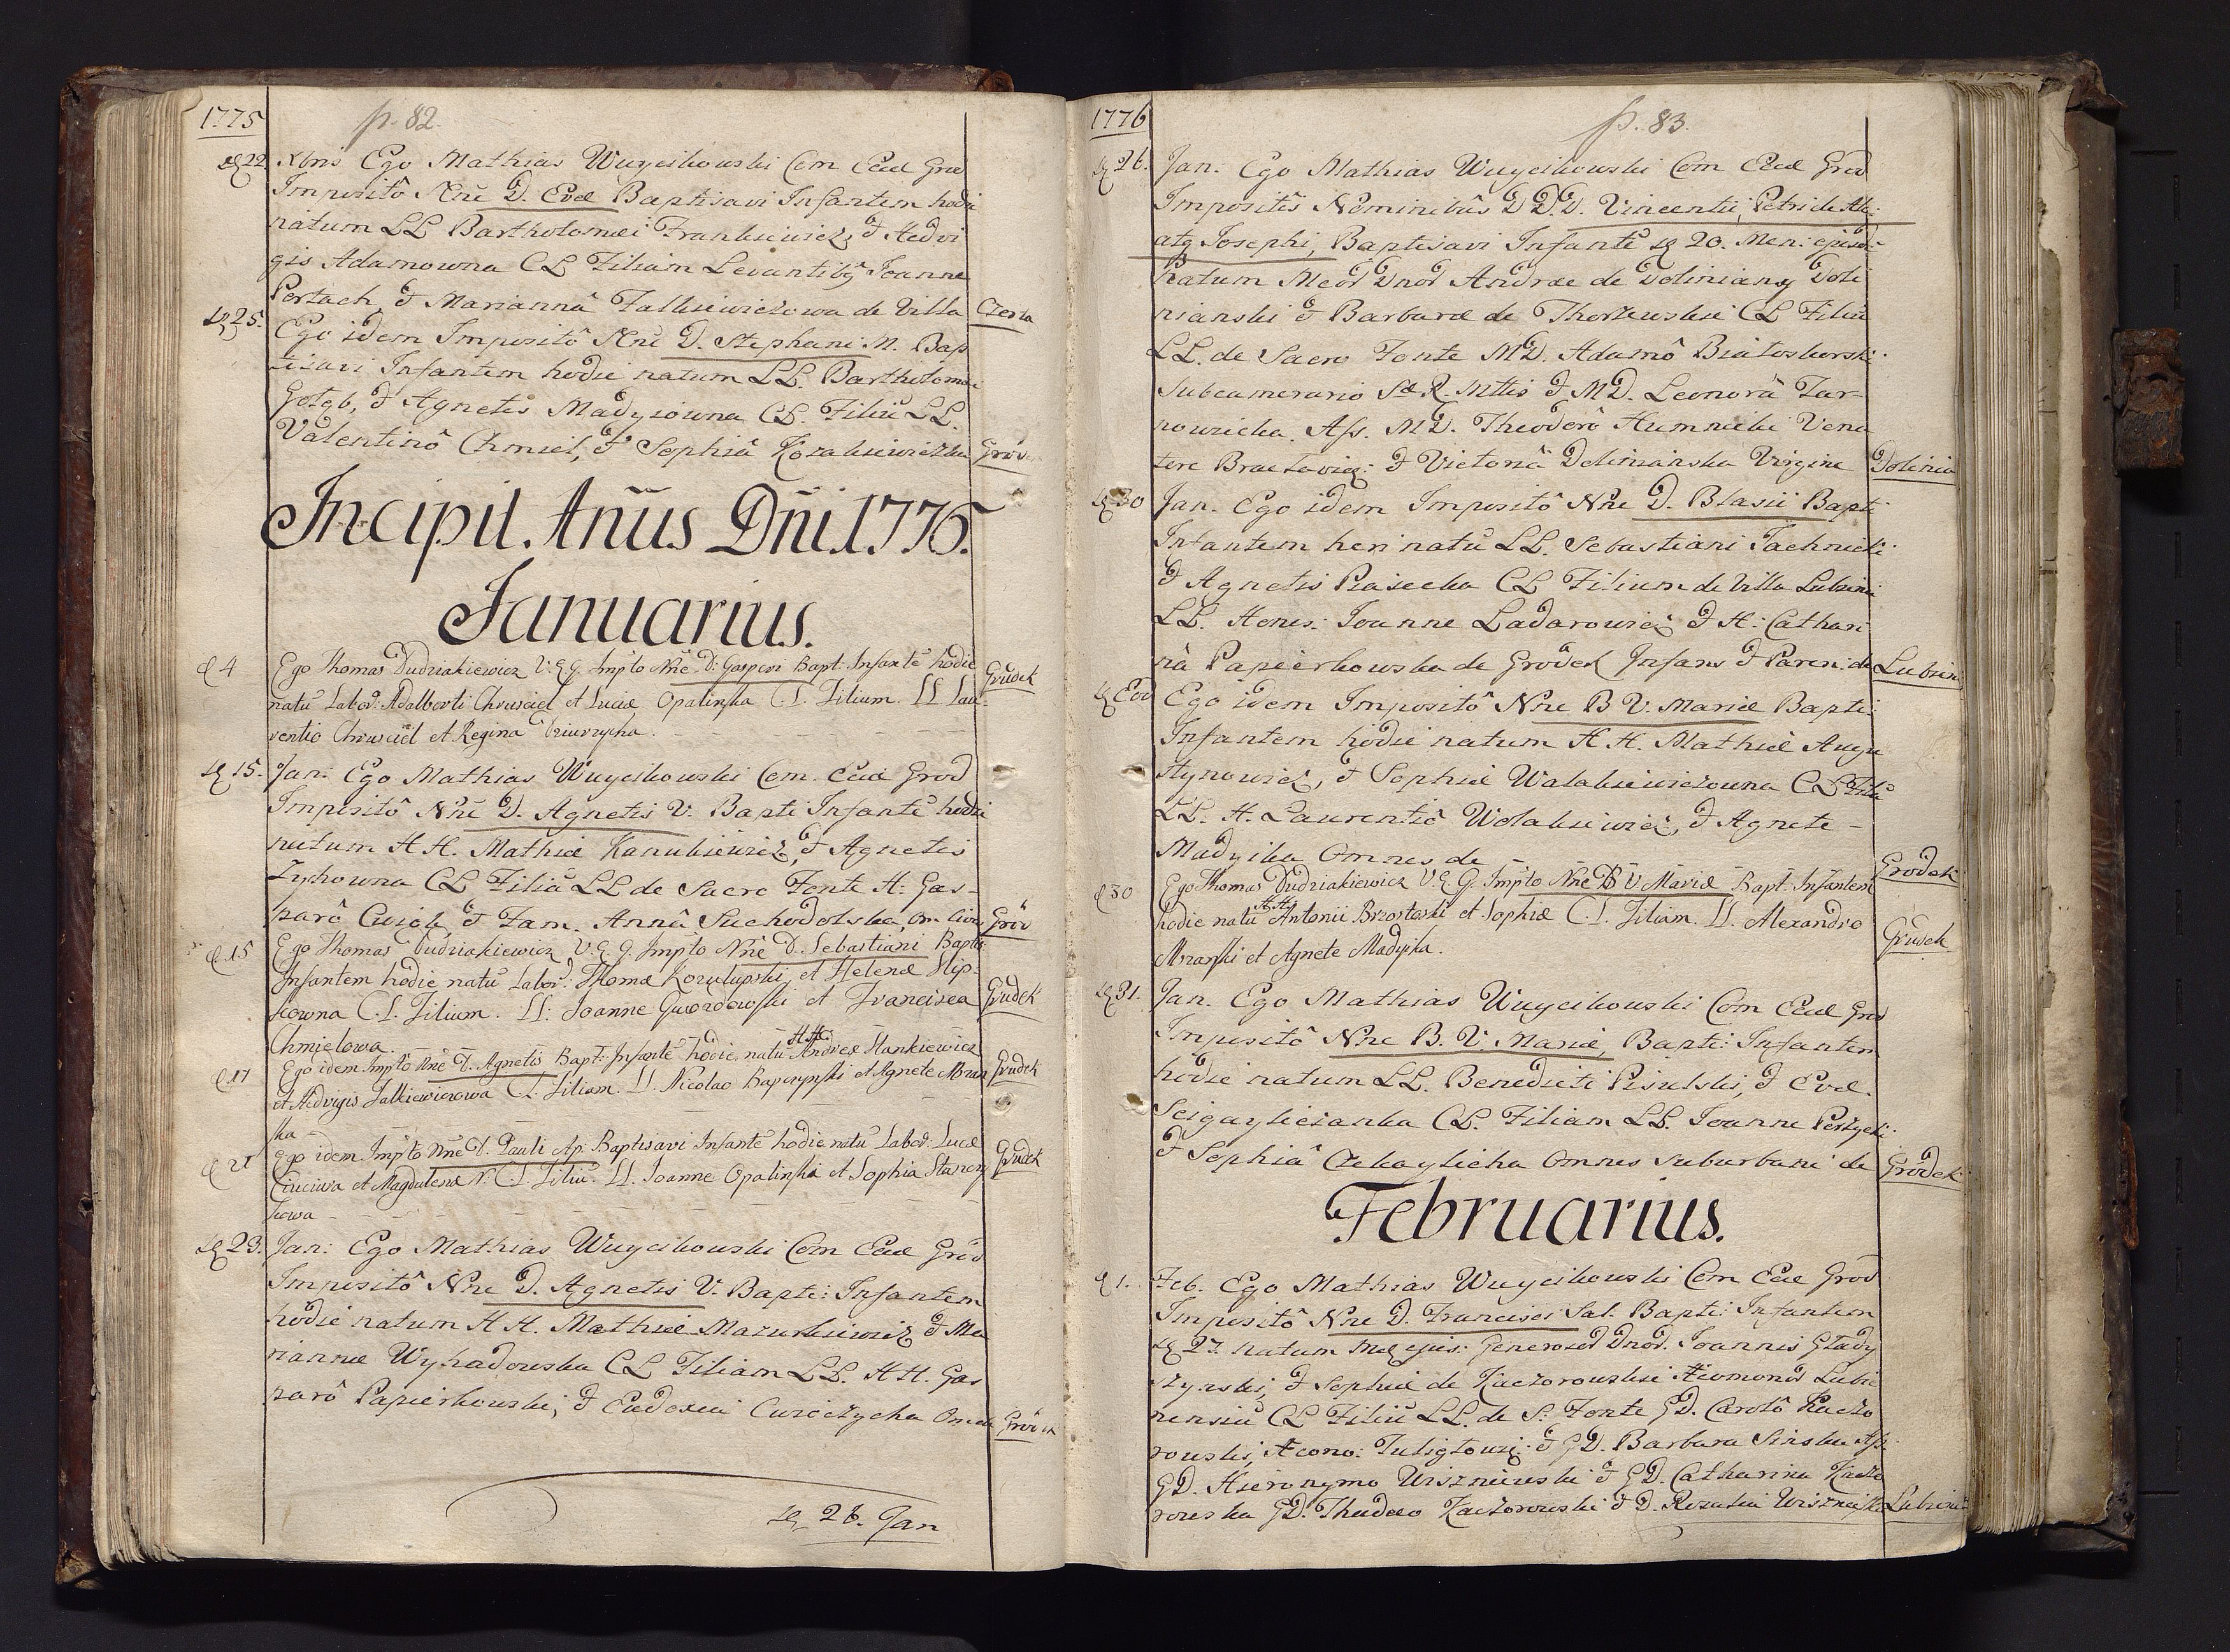 1775
p. 82.
22 Xbris Ego Mathias Wuycikowski Com Eccl Grod
Impositô Nñe D. Evæ Baptisavi Infantem hodie
natum LL Bartholomæi Frankiewicz, & Hedvi
gis Adamowna CL Filiam Levantibq Joanne
Pertach, & Mariannâ Falkiewiczowa de Villa Czerla
25. Ego idem Impositô Nñe D. Stephani M. Bap
tisavi Infantem hodie natum LL. Bartholomæi
Gołąb, & Agnetis Madyiowna CL. Filiũ LL.
Valentinô Chmiel, & Sophiâ Kozakiewiczka Grod
Incipit. Añus Dñi 1776.
Januarius.
4 Ego Thomas Dudziakiewicz V.E.G. Impto Nñe D: Gasparis Bapt: Infantẽ hodie Grudek
natũ Labor: Adalberti Chrusciel et Luciæ Opalinska C.L. Filium. LL Lau-
rentio Chrusciel et Regina Dziurzycha.
15. Jan: Ego Mathias Wuycikowski Com. Eccl Grod
Impositô Nñe D. Agnetis V. Bapti Infantẽ hodie
natum HH. Mathiæ Kanukiewicz, & Agnetis
Zychowna CL Filiã LL de Sacro Fonte H: Gas-
parô Cwiok, & Fam. Annâ Suchodolska, om. Grod
15 Ego Thomas Dudziakiewicz V.E.G. Impto Nñe D. Sebastiani Bapti
Infantem hodie natũ Labor: Thomæ Kozulupski et Helenæ Slip-
kowna C.L. Filium. LL: Joanne Gwozdowski et Francisca Grudek
Chmielowa.
17 Ego idem Impto Nñe D. Agnetis Bapt: Infantẽ hodie natũ HH. Andreæ Stankiewicz
et Hedvigis Falkiewiczowa C.L. Filiam. LL. Nicolao Bapczynski et Agnete Mran Grudek
ska
21 Ego idem Impto Nñe D. Pauli Ap: Baptisavi Infantẽ hodie natũ Labor: Lucæ
Ciuciwa et Magdalenæ N. C.L. Filiũ. LL. Joanne Opalinski et Sophia Starczy Grudek
kowa
23. Jan: Ego Mathias Wuycikowski Com Eccl Grod
Impositô Nñe D. Agnetis V. Bapti: Infantem
hodie natum HH. Mathiæ Mazurkiewicz & Ma
riannæ Wyhadowska CL Filiam LL. HH. Gas
parô Papierkowski, & Eudoxia Cwioczycha Omes de Grod
26. Jan
1776
p. 83.
26. Jan: Ego Mathias Wuycikowski Com Eccl Grod
Impositis Nominibus D.D.D. Vincentii, Petri de Alc:
atq Josephi, Baptisavi Infantẽ 20. Men: ejusd:
Natum Mcor Dnor Andræe de Doliniany Doli
nianski & Barbaræ de Thorzewskie CL Filiũ
LL. de Sacro Fonte MD. Adamô Białoskorski
Subcamerario Sæ R. Mttis & MD. Leonorâ Tar-
nowiecka. Ass. MD. Theodorô Humnicki Vena
tore Braclavien: & Victoriâ Doliniańska Virgine Dolinia
30 Jan. Ego idem Impositô Nñe D. Blasii Bapti
Infantem heri natũ LL. Sebastiani Jachnicki
& Agnetis Piasecka CL Filium de Villa Lubieni
LL. Hones: Joanne Ladarowicz & H: Cathari
nâ Papierkowska de Grodek Infans & Paren: de Lubien
Eod Ego idem Impositô Nñe B V. Mariæ Bapti:
Infantem hodie natum HH. Mathiæ Augu
stynowicz, & Sophiæ Walakiewiczowna CL Filiã
LL. H. Laurentiô Wolakiewicz, & Agnete -
Madyika Omnes de Grodek
30 Ego Thomas Dudziakiewicz V.E.G. Impto Nñe B V. Mariæ Bapt: Infantem
hodie natũ HH. Antonii Brzostoski et Sophiæ C.L. Filiam. LL. Alexandro Grudek
Mranski et Agnete Madyika.
31. Jan. Ego Mathias Wuycikowski Com Eccl Grod
Impositô Nñe B. V. Mariæ, Bapti: Infantem
hodie natum LL. Benedicti Pisulski, & Evæ
Scigayliczanka CL. Filiam LL. Joanne Perzycki
& Sophiâ Czekaylicha Omnes suburbani de Grodek
Februarius.
1. Feb. Ego Mathias Wuycikowski Com Eccl Grod
Impositô Nñe D. Francisci Sal. Bapti: Infantem
27. natum ejus: Generosor Dnor. Joannis Glady
szynski, & Sophiæ de Kaczorowskie Lubie
nensiũ CL Filiũ LL. de S: Fonte GD. Carolô Kaczo
rowski, Æcono: Tuligłowi: & GD. Barbara Sirska Ass
GD. Hieronymo Wiszniewski & GD. Catharina Kaczo
rowska GD. Thadæo Kaczorowski & D. Rozalia Wiszniewska Lubien